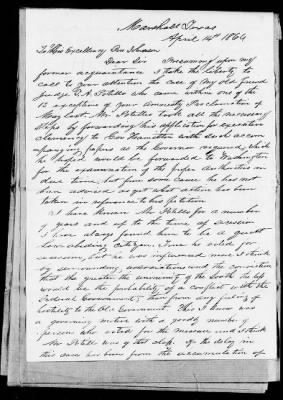 Marshall Texas
April 14th 1866
To His Excellency Pres Johnson
Dear Sir Presuming upon my
former acquaintance I take the liberty to
call to your attention the case of my old friend
Judge who came within one of the
13 exceptions of your Amnesty Proclamation of
May last. Mr took all the necessary
steps by forwarding his application for executive
clemency to Gov Hamilton with such accom
panying papers as the Governor required, which
he hoped would be forwarded to Washington
for the examination of the proper authorities
there, but from some cause he has not
been advised as yet what action has been
taken in reference to his petition
I have known Mr for a number
of years and up to the time of secession
I have always found him to be a quiet
law abiding citizen. True he voted for
secession, but he was influenced more I think
by surrounding associations and the conviction
that the greater the unanimity of the South the less
would be the probability of a conflict with the
Federal Government, than from any feeling of
hostility to the Old Government. This I know was
a governing motive with a goodly number of
persons who voted for the measure and I think
Mr was of that class. If the delay in
this case has been from the accumulation of